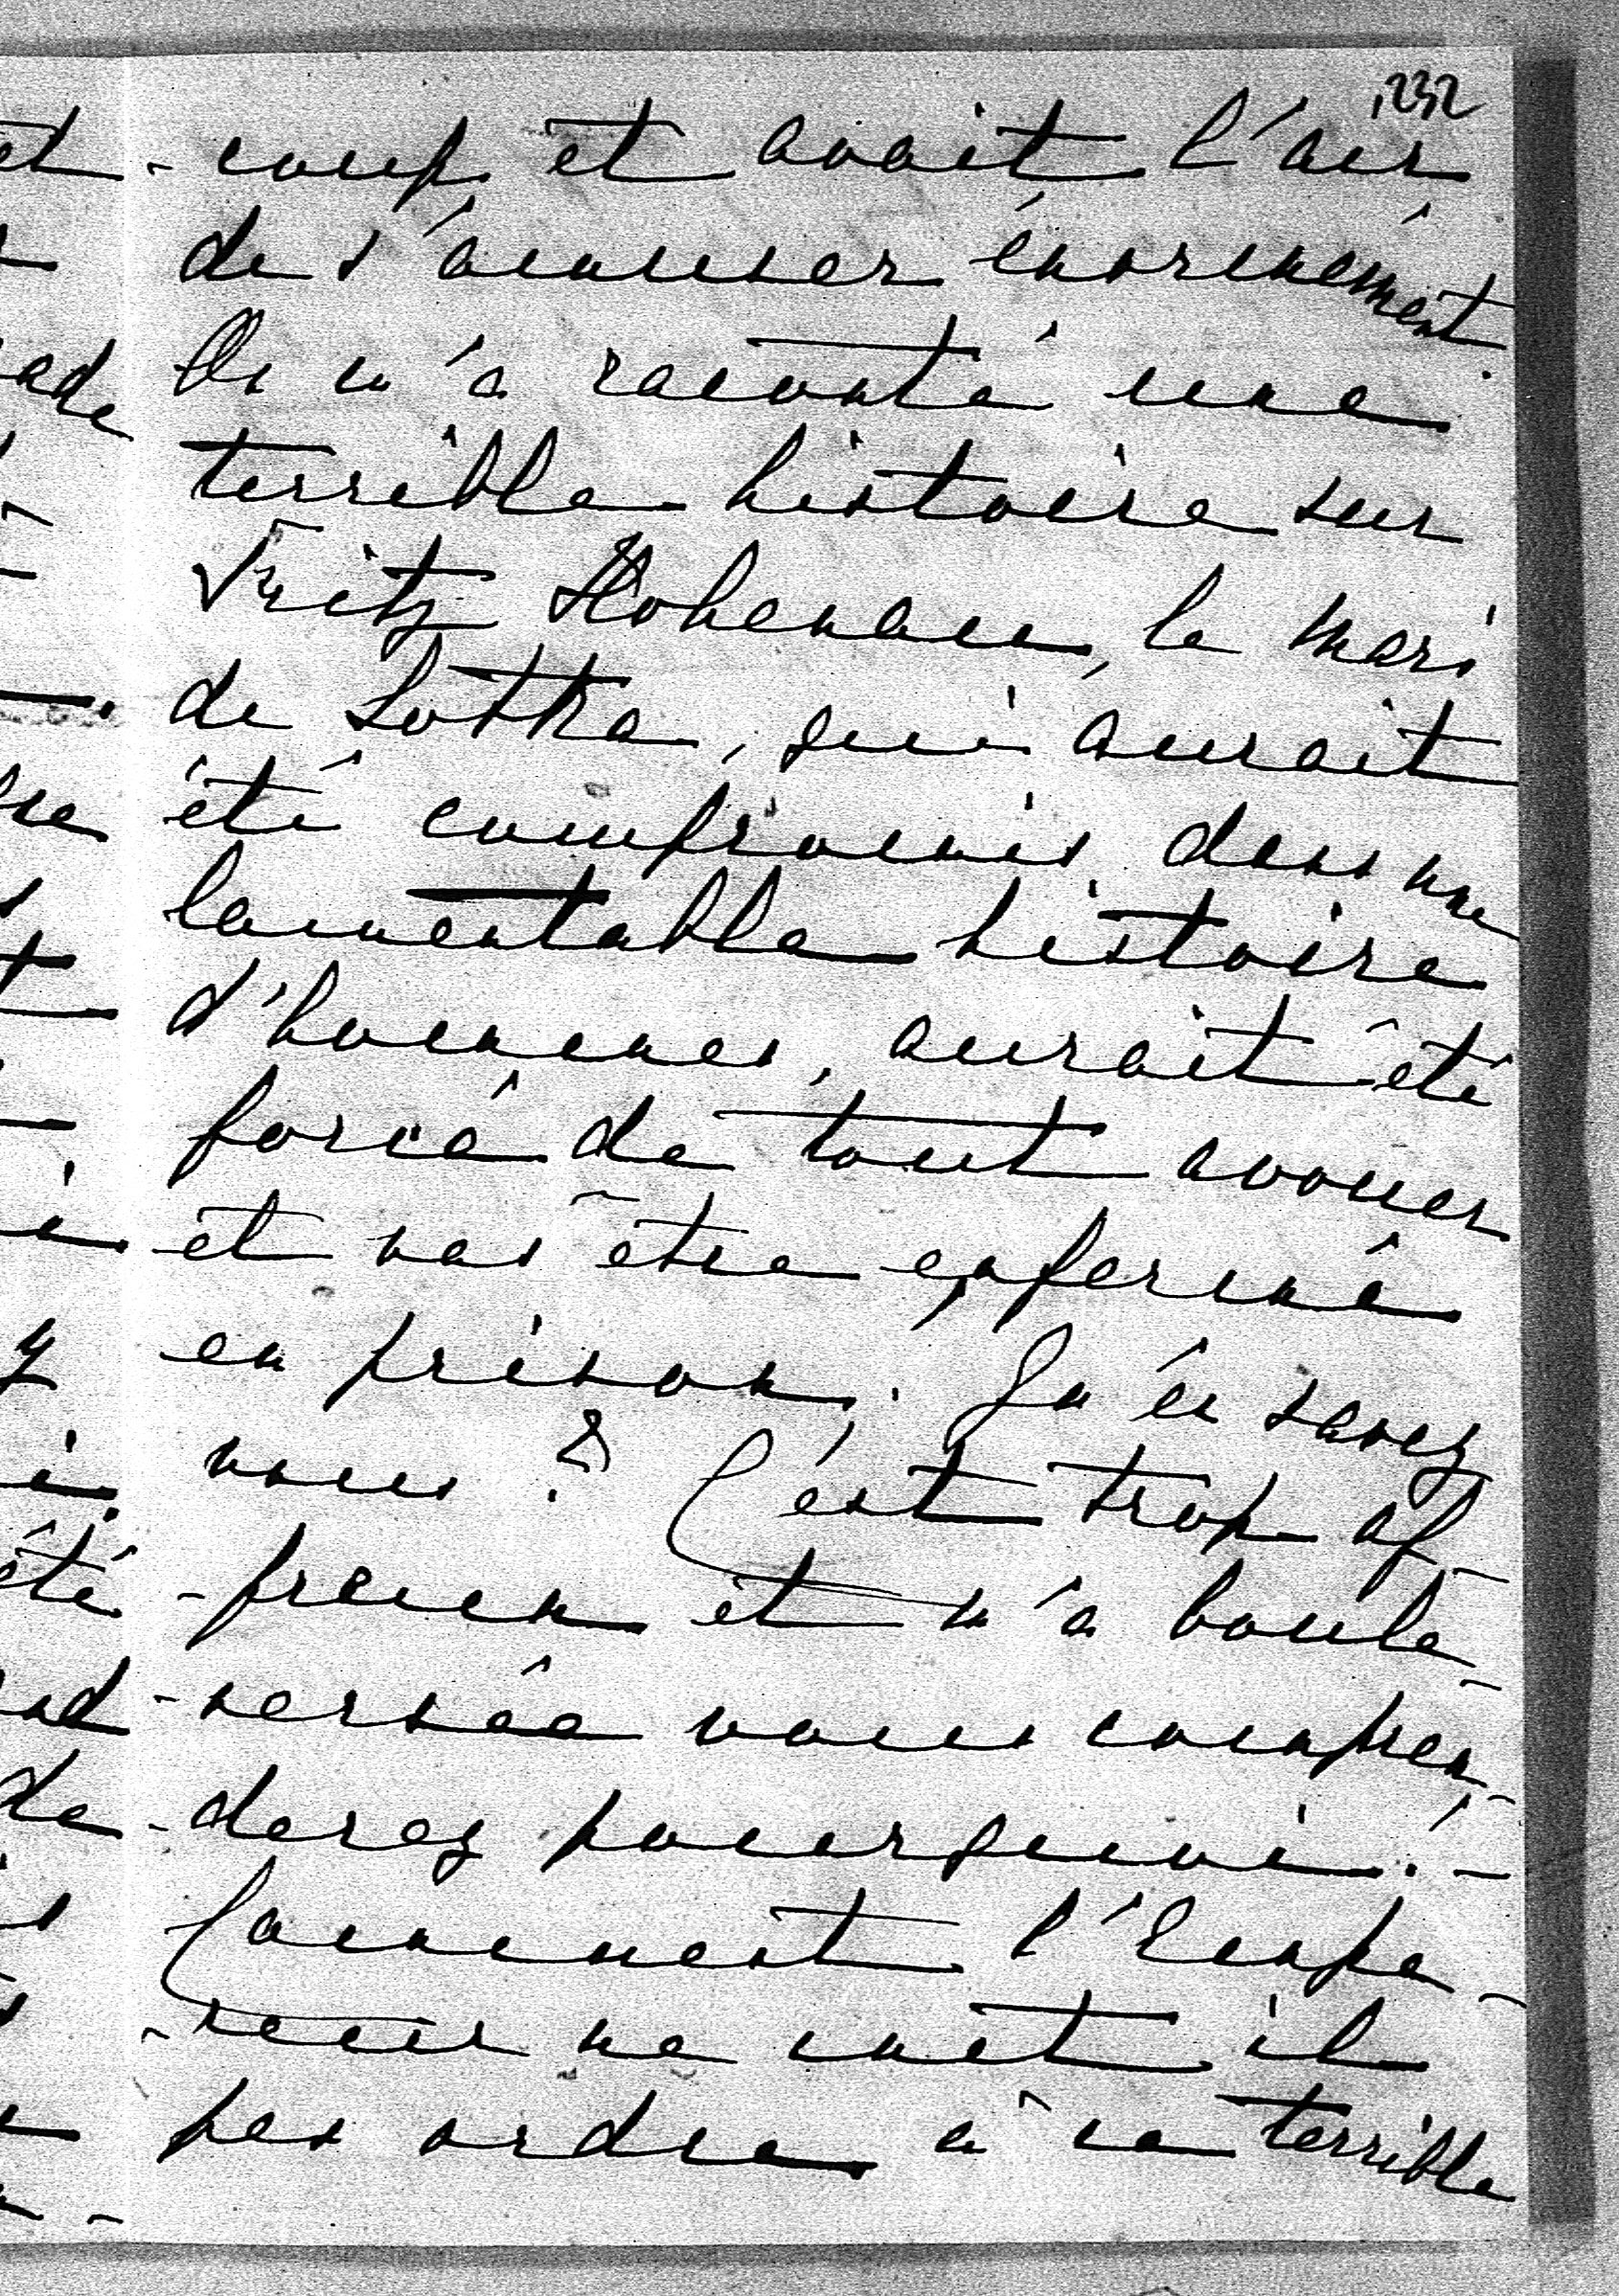 232
-coup et avait l'air
de s'amuser énormément.
On m'a raconté une
terrible histoire sur
Fritz Hohenau, le mari
de Lotka, qui aurait
été compromis dans une
lamentable histoire
d'hommes, aurait été
forcé de tout avouer
et va être enfermé
en prison. Qu'en savez
vous? C'est trop af-
-freux et m'a boule-
-versée vous compren-
-derez pourquoi! -
Comment l'Empe-
-reur ne met il
pas ordre à ce terrible